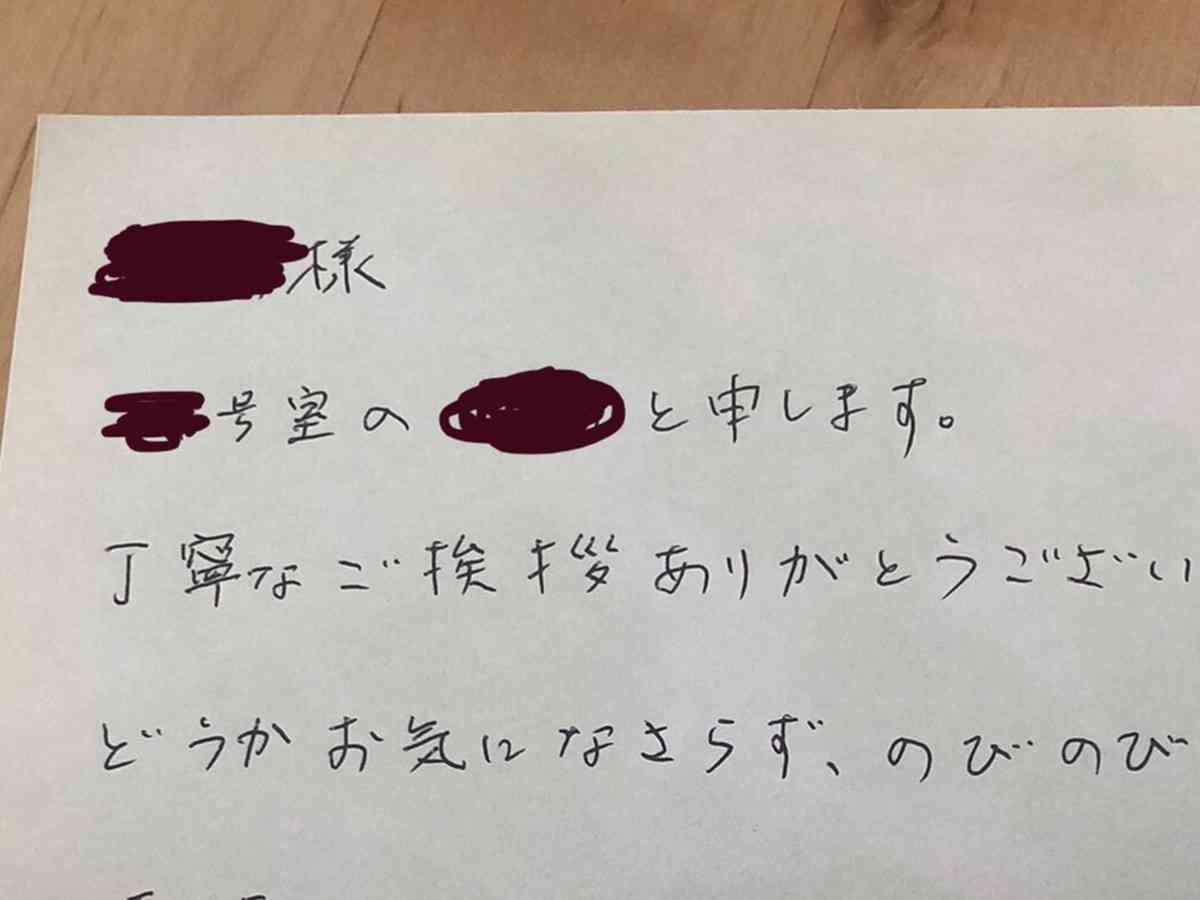 様
号室の と申します。
丁寧なご挨拶ありがとうござい
どうかお気になさらず、のびのび